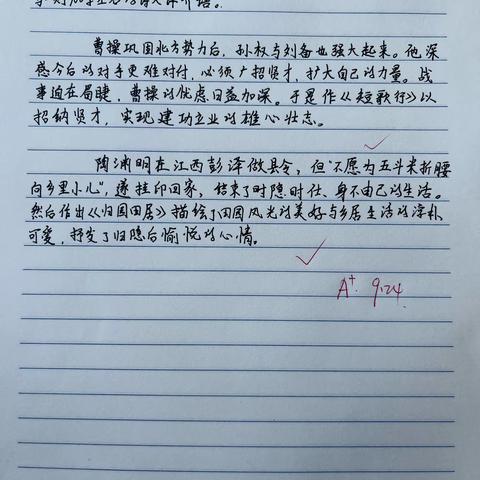 曹操巩固北方势力后，孙权与刘备也强大起来。他深
感今后的对手更难对付，必须广招贤才，扩大自己的力量。战
事迫在眉睫，曹操的忧虑日益加深。于是作《短歌行》以
招纳贤才，实现建功立业的雄心壮志。
陶渊明在江西彭泽做县令，但"不愿为五斗米折腰
向乡里小儿"，遂挂印回家，结束了时隐时仕、身不由己的生活。
然后作出《归园田居》描绘了田园风光的美好与乡居生活的淳朴
可爱，抒发了归隐后愉悦的心情。
A+ 9.24